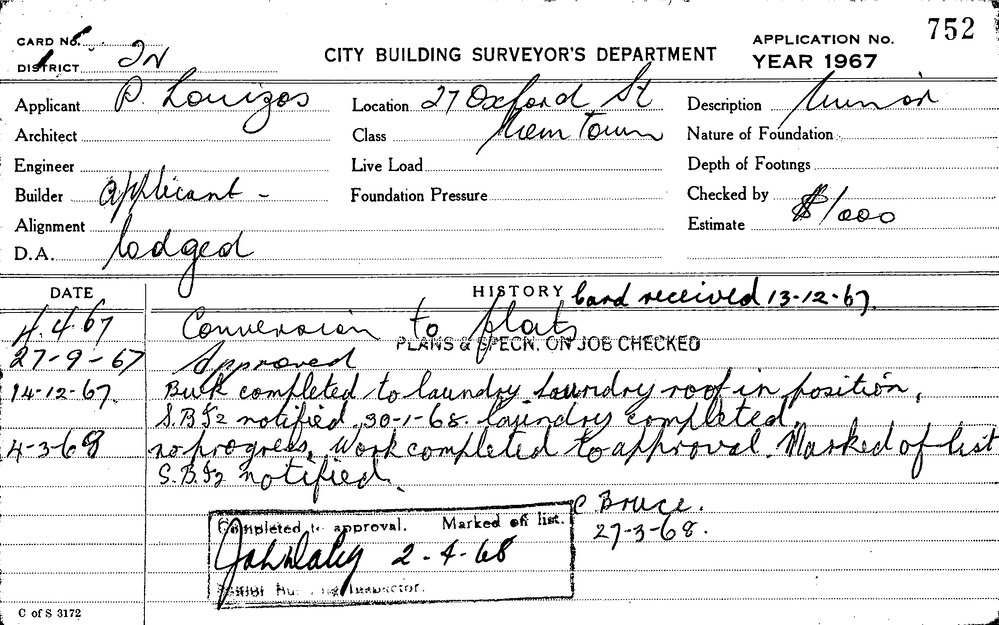 752
CARD No.
DISTRICT
CITY BUILDING SURVEYOR'S DEPARTMENT
APPLICATION No.
YEAR 1967
Applicant P. Louizos
Location 27 Oxford St
Description Minor
Architect
Class New Town
Nature of Foundation
Engineer
Live Load
Depth of Footings
Builder applicant -
Foundation Pressure
Checked by
Alignment
Estimate $1000
D.A. lodged
DATE
HISTORY Card received 13-12-67.
4.4.67 Conversion to flats
PLANS & SPECN. ON JOB CHECKED
27-9-67 Approved
14-12-67. Bwk completed to laundry. Laundry roof in position,
notified. 30-1-68. laundry completed,
4-3-68 no progress. Work completed to approval. Marked of list
notified.
C Bruce.
27-3-68.
Completed to approval. Marked off list.
2-4-68
Building Inspector.
C of S 3172